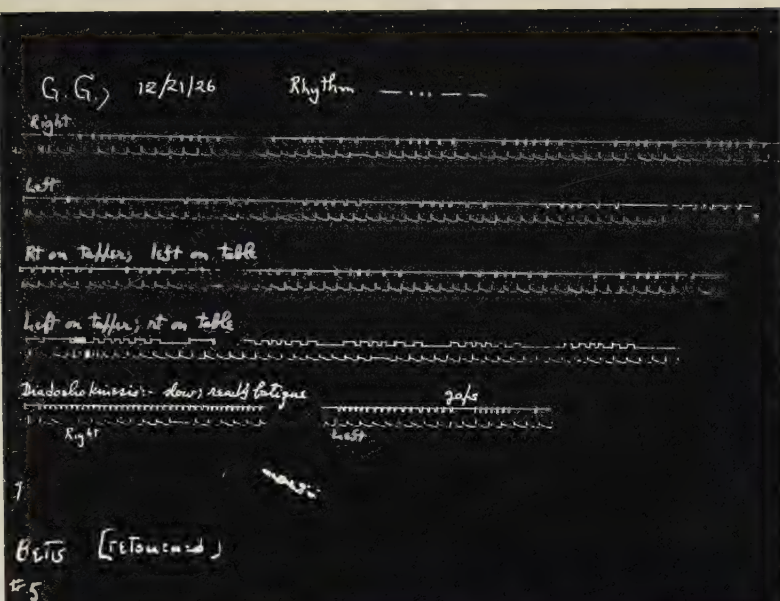 G. G., 12/21/26 Rhythm — ... — —
Right
Left
Rt on tapper; left on table
Left on tapper; rt on table
Diadochokinesis:- slow; ready fatigue gaps
Right Left
BETTS [retouched]
5